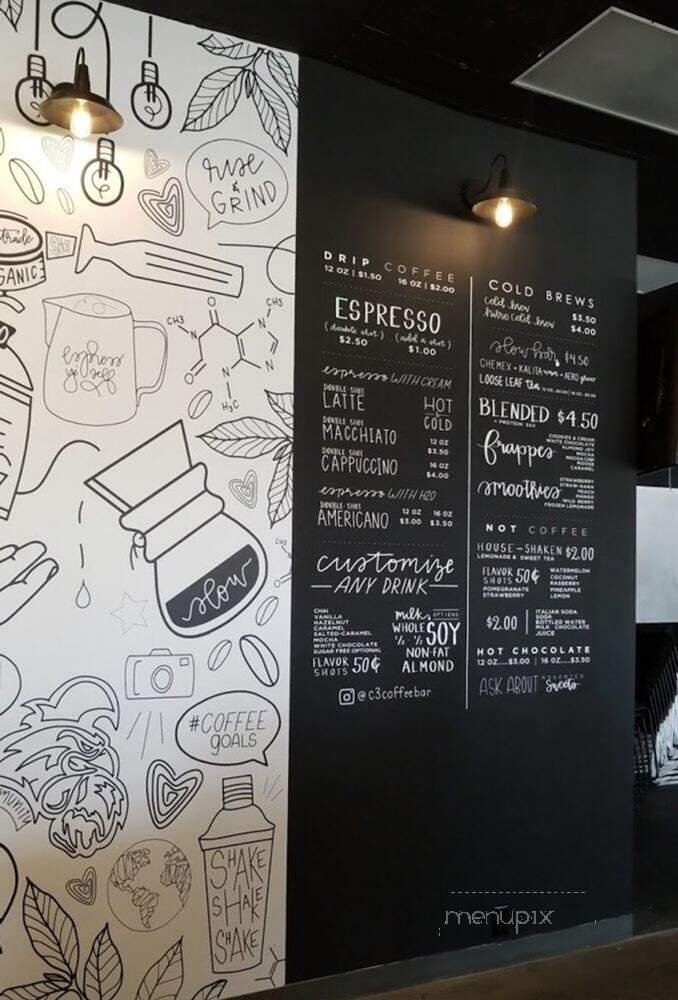 rise
&
GRIND
trade
SHOT
GANIC
espresso
yo'self
CH3
O
N
CH3
N
O
N
N
H3C
slow
#COFFEE
GOALS
MMUNITY
SHAKE
SHAKE
SHAKE
DRIP COFFEE
12 OZ | $1.50 16 OZ | $2.00
ESPRESSO
(double shot) (add a shot)
$2.50 $1.00
espresso WITH CREAM
DOUBLE SHOT
LATTE
DOUBLE SHOT
MACCHIATO
DOUBLE SHOT
CAPPUCCINO
HOT
OR
COLD
12 OZ
$3.50
16 OZ
$4.00
espresso WITH H2O
DOUBLE SHOT
AMERICANO
12 OZ 16 OZ
$3.00 $3.50
customize
ANY DRINK
CHAI
VANILLA
HAZELNUT
CARAMEL
SALTED-CARAMEL
MOCHA
WHITE CHOCOLATE
SUGAR FREE OPTIONAL
FLAVOR
SHOTS 50¢
milk OPTIONS
WHOLE SOY
½ - ½
NON-FAT
ALMOND
@c3coffeebar
COLD BREWS
Cold brew $3.50
Nitro Cold brew $4.00
slow bar $4.50
CHEMEX • KALITA wave • AERO press
LOOSE LEAF tea
BLENDED $4.50
+ PROTEIN 50¢
frappes
COOKIES & CREAM
WHITE CHOCOLATE
ALMOND JOY
MOCHA
MOCHACHIP
MOOSE
CARAMEL
smoothies
STRAWBERRY
STRAW-NANA
PEACH
MANGO
WILD BERRY
FROZEN LEMONADE
NOT COFFEE
HOUSE-SHAKEN $2.00
LEMONADE & SWEET TEA
FLAVOR
SHOTS 50¢
POMEGRANATE
STRAWBERRY
WATERMELON
COCONUT
RASBERRY
PINEAPPLE
LEMON
$2.00
ITALIAN SODA
SODA
BOTTLED WATER
MILK CHOCOLATE
JUICE
HOT CHOCOLATE
12 OZ....$3.00 | 16 OZ....$3.50
ASK ABOUT ASSORTED
Sweets
menupix